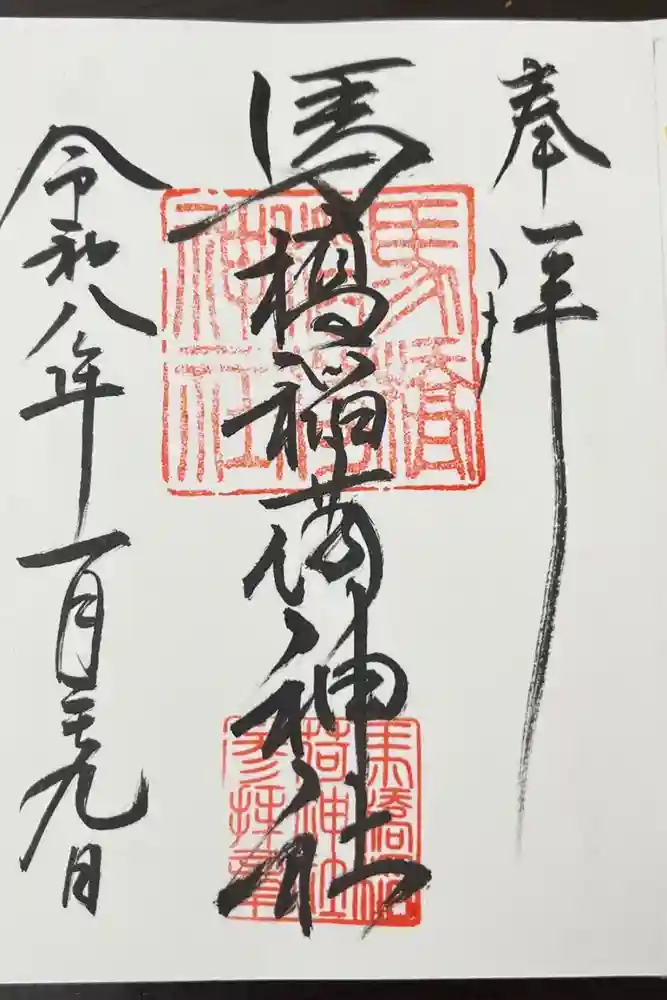 奉拝
馬橋稲荷神社
令和八年一月二十九日
馬橋
稲荷
神社
馬橋稲
荷神社
参拝章